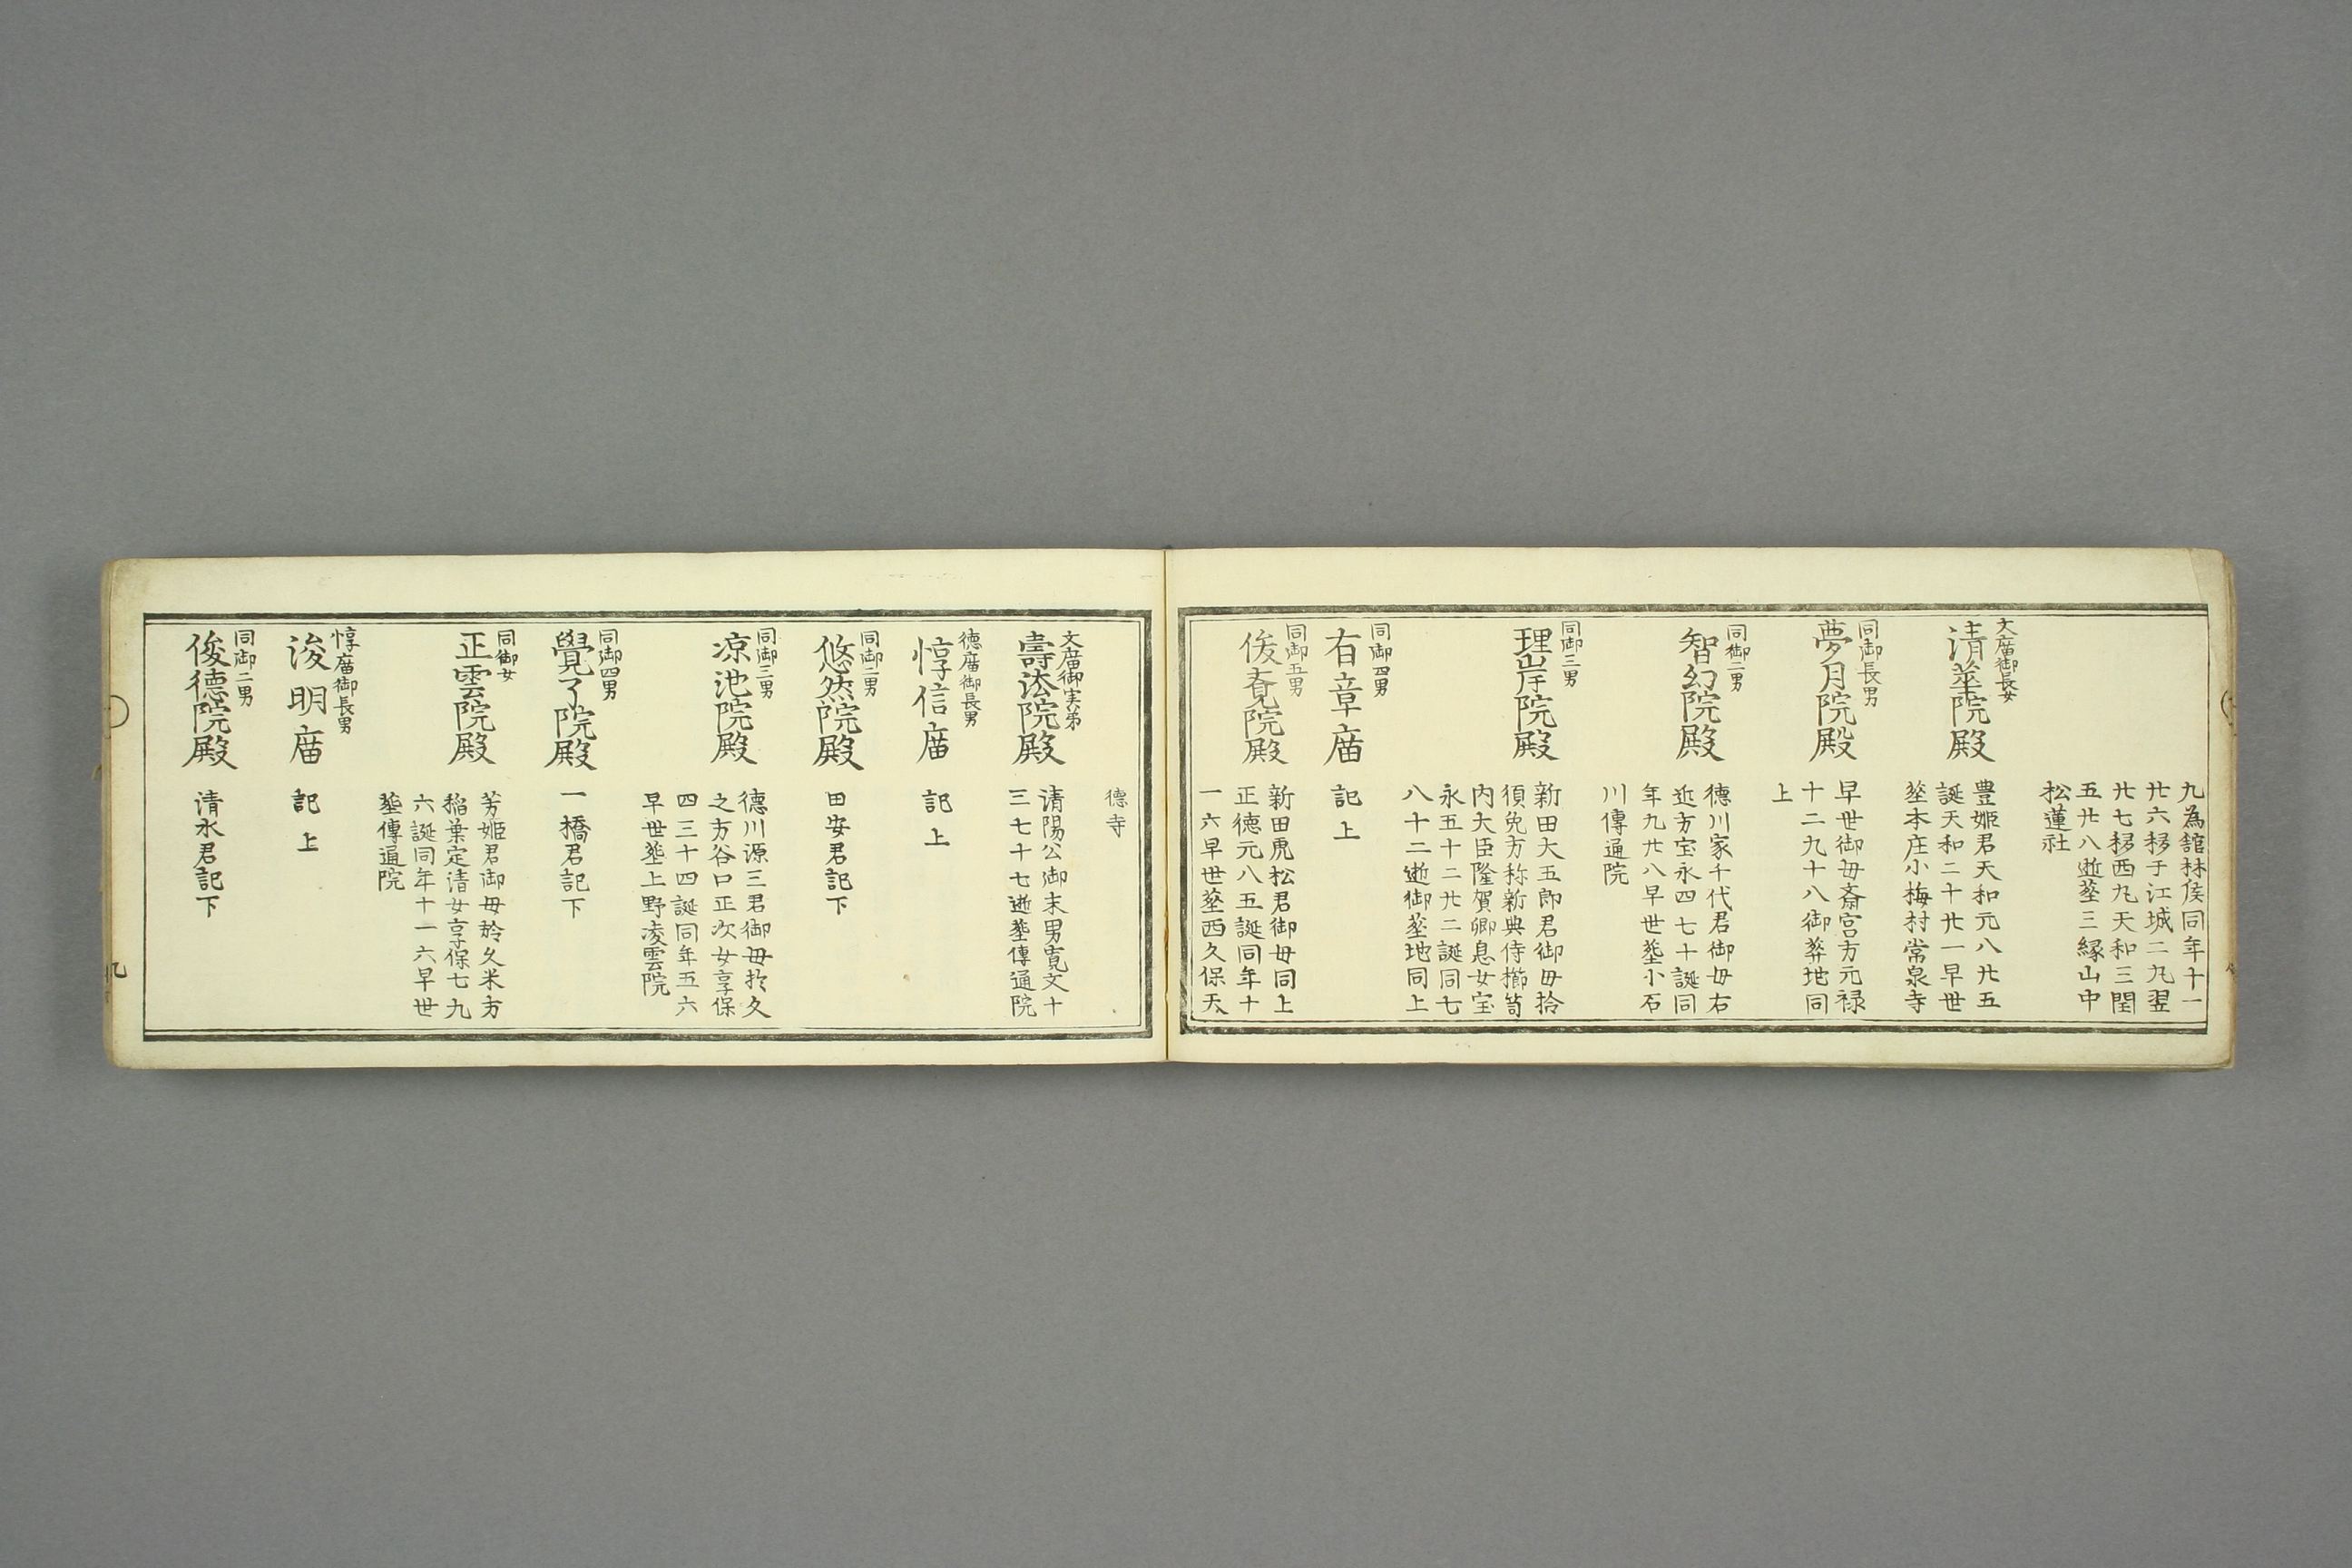 九為舘林侯同年十一
廿六移于江城二九翌
廿七移西丸天和三閏
五廿八逝葬三縁山中
松蓮社
文廟御長女
清華院殿
豊姫君天和元八廿五
誕天和二十廿一早世
葬本庄小梅村常泉寺
同御長男
夢月院殿
早世御母斎宮方元禄
十二九十八御葬地同
上
同御二男
智幻院殿
徳川家千代君御母右
近方宝永四七十誕同
年九廿八早世葬小石
川傳通院
同御三男
理岸院殿
新田大五郎君御母拾
須免方称新典侍櫛笥
内大臣隆賀卿息女宝
永五十二廿二誕同七
八十二逝御葬地同上
同御四男
有章廟
記上
同御五男
俊覚院殿
新田虎松君御母同上
正徳元八五誕同年十
一六早世葬西久保天
徳寺
文廟御実弟
壽法院殿
清陽公御末男寛文十
三七十七逝葬傳通院
徳廟御長男
惇信廟
記上
同御二男
悠然院殿
田安君記下
同御三男
凉池院殿
徳川源三君御母於久
之方谷口正次女享保
四三十四誕同年五六
早世葬上野凌雲院
同御四男
覺了院殿
一橋君記下
同御女
正雲院殿
芳姫君御母於久米方
稲葉定清女享保七九
六誕同年十一六早世
葬傳通院
惇廟御長男
浚明廟
記上
同御二男
俊徳院殿
清水君記下
九